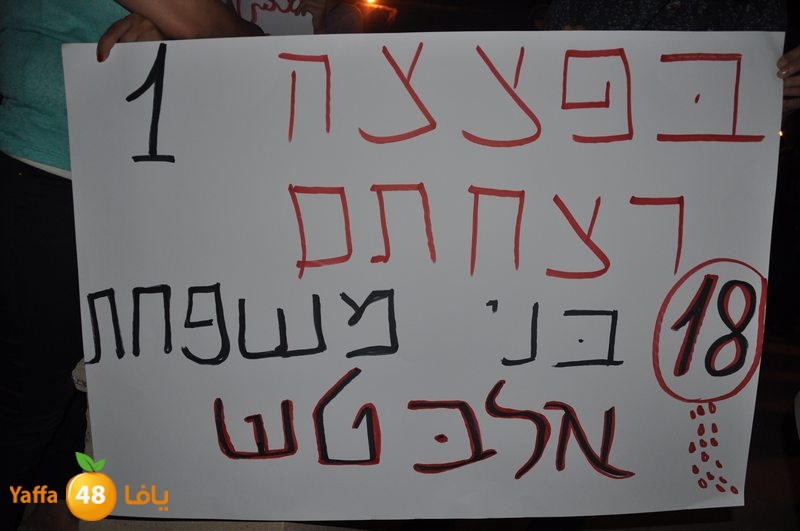 בפצצה 1
רצחתם
18 בני משפחת
אלבטש
Yaffa 48 يافا